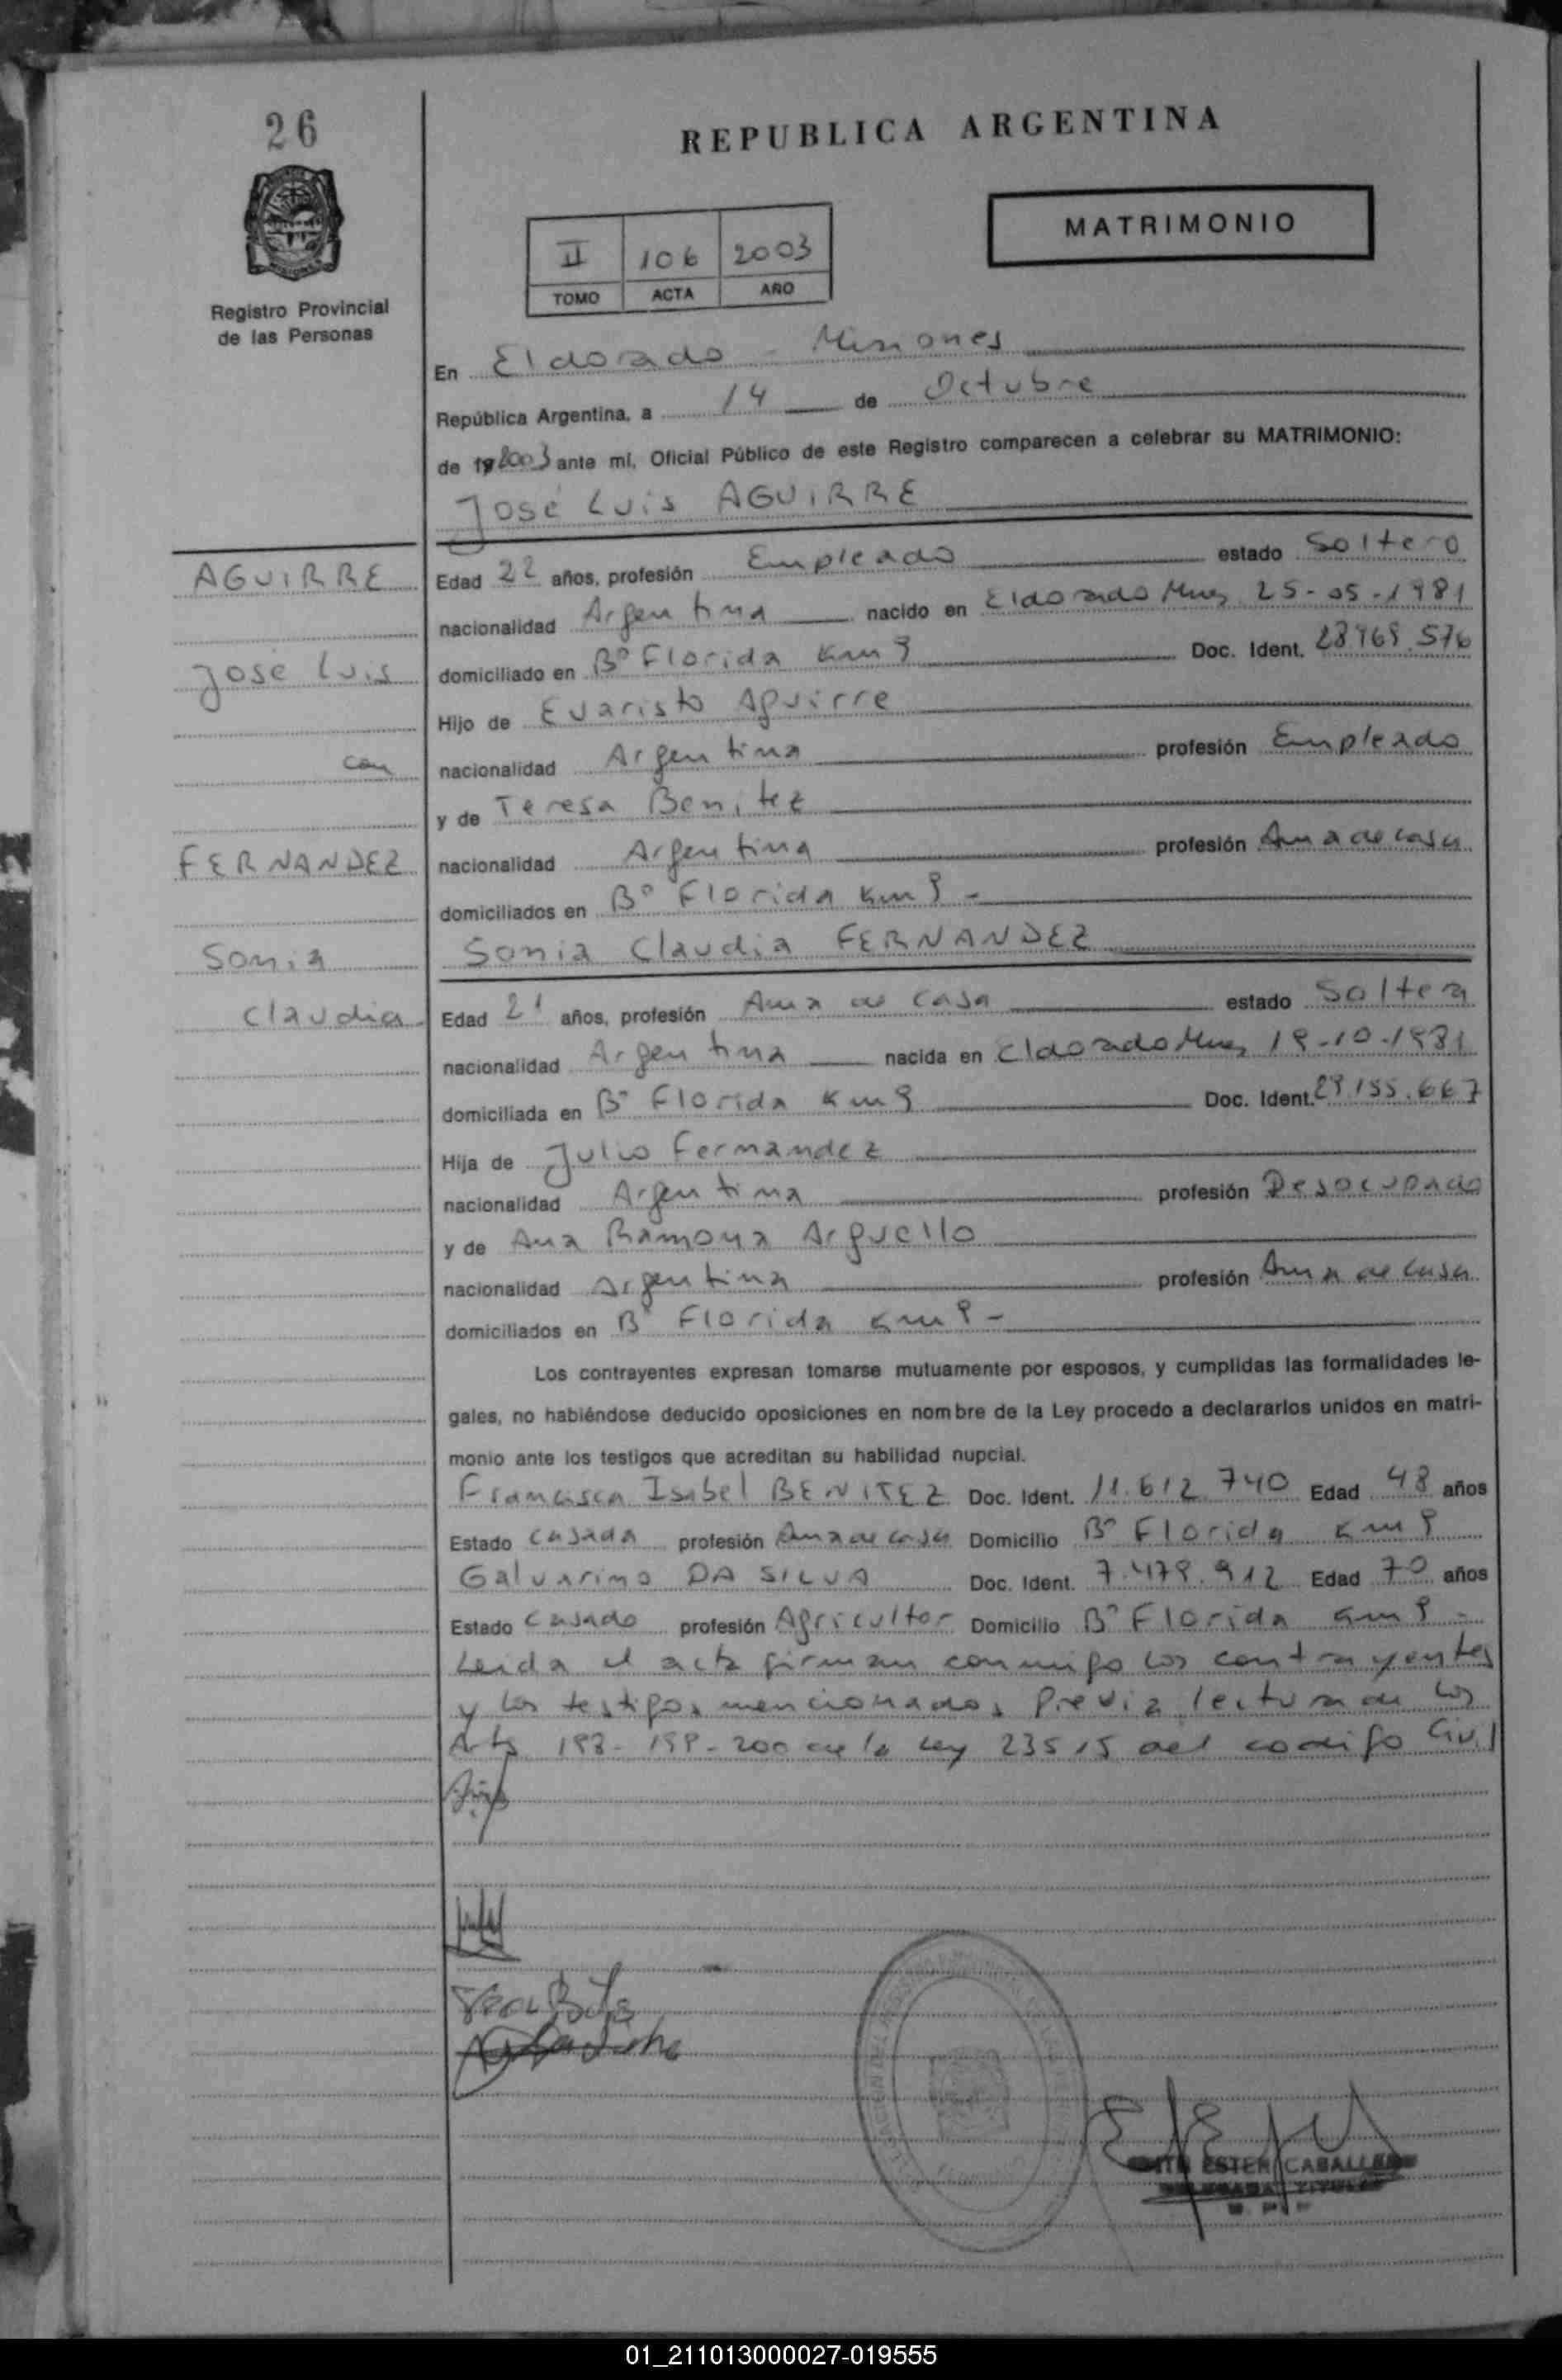 26
REPUBLICA ARGENTINA
MATRIMONIO
II 106 2003
TOMO ACTA AÑO
Registro Provincial
de las Personas
En Eldorado - Misiones
República Argentina, a 14 de Octubre
de 2003 ante mí, Oficial Público de este Registro comparecen a celebrar su MATRIMONIO:
José Luis AGUIRRE
AGUIRRE
José Luis
con
FERNANDEZ
Sonia
Claudia
Edad 22 años, profesión Empleado estado Soltero
nacionalidad Argentina nacido en Eldorado Mnes 25-05-1981
domiciliado en B° Florida Km 9 Doc. Ident. 576
Hijo de Evaristo Aguirre
nacionalidad Argentina profesión Empleado
y de Teresa Benitez
nacionalidad Argentina profesión Ama de casa
domiciliados en B° Florida Km 9 -
Sonia Claudia FERNANDEZ
Edad 21 años, profesión Ama de casa estado Soltera
nacionalidad Argentina nacida en Eldorado Mnes 19-10-1981
domiciliada en B° Florida Km 9 Doc. Ident. 29.155.667
Hija de Julio Fernandez
nacionalidad Argentina profesión Desocupado
y de Ana Ramona Arguello
nacionalidad Argentina profesión Ama de casa
domiciliados en B° Florida Km 9 -
Los contrayentes expresan tomarse mutuamente por esposos, y cumplidas las formalidades le-
gales, no habiéndose deducido oposiciones en nombre de la Ley procedo a declararlos unidos en matri-
monio ante los testigos que acreditan su habilidad nupcial.
Francisca Isabel BENITEZ Doc. Ident. 11.612.740 Edad 48 años
Estado Casada profesión Ama de casa Domicilio B° Florida Km 9
Galvarino DA SILVA Doc. Ident. 7.479.912 Edad 70 años
Estado Casado profesión Agricultor Domicilio B° Florida Km 9 -
Leida el acta firman conmigo los contrayentes
y los testigos mencionados Previa lectura de los
Arts 198-199-200 de la Ley 23515 del codigo Civil
ESTER CABALLERO
01_211013000027-019555